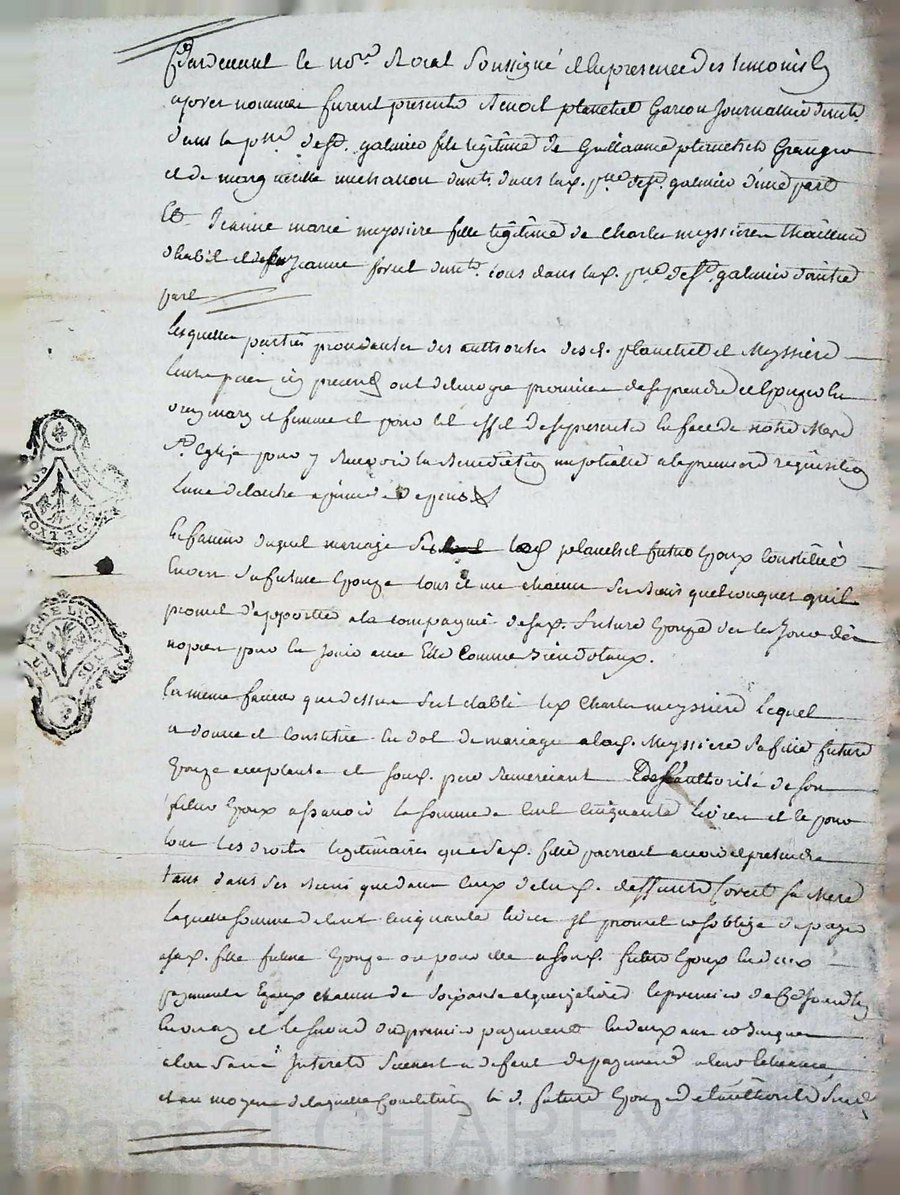 Pardevant le no.re Royal Soussigné et En presence des temoins Cy
apres nommes furent presents Benoit planchet Garcon Journallier demt.
dans la p.sse de St. galmier fils legitime de Guillaume planchet Granger
et de margueritte michallon demt. dans lad. p.sse de St. galmier d'une part
Et Jeanne marie meyssiere fille legitime de Charles meyssiere tailleur
d'habit et de Jeanne forest demt. tous dans lad. p.sse de St. galmier d'autre
part
Lesquelles parties procedantes des authorites desd. planchet et Meyssiere
Leurs peres icy presents ont reciproque promis de se prendre et Epouser En
vray mary et femme et pour cet effet de se presenter En face de notre Mere
Ste. Eglise pour y Recevoir la Benediction nuptialle a la premiere requisition
L'une de l'autre a peine de depens
En faveur duquel mariage led. planchet futur Epoux Constitue
Envers sa future Epouze tous et un chacun ses Biens quelconques qu'il
promet d'apporter a la compagnie de sad. future Epouze des le Jour des
nopces pour En jouir avec Elle Comme Biens dotaux.
En meme faveur que dessus s'est etabli led. Charles meyssiere Lequel
a donné et constitué En dot de mariage a lad. Meyssiere sa fille future
Epouze acceptante et sond. pere Remerciant de l'authorité de son
futur Epoux a sçavoir la somme de Cent Cinquante Livres et ce pour
tous les droits legitimaires que sad. fille pourroit avoir et pretendre
tans dans ses Biens que dans Ceux de lad. deffunte forest sa Mere
Laquelle somme de Cent Cinquante livres il promet et s'oblige de payer
a sad. fille future Epouze ou pour elle a sond. futur Epoux En deux
payements Egaux chacun de Soixante et quinze livres le premier
En un an et le second du premier payement En deux ans et Jusques
alors sans Interets Sinon a defaut de payement a leur Echeance
et au moyen de laquelle Constitution la d. future Epouze de l'authorité
Pascal CHAREYRON